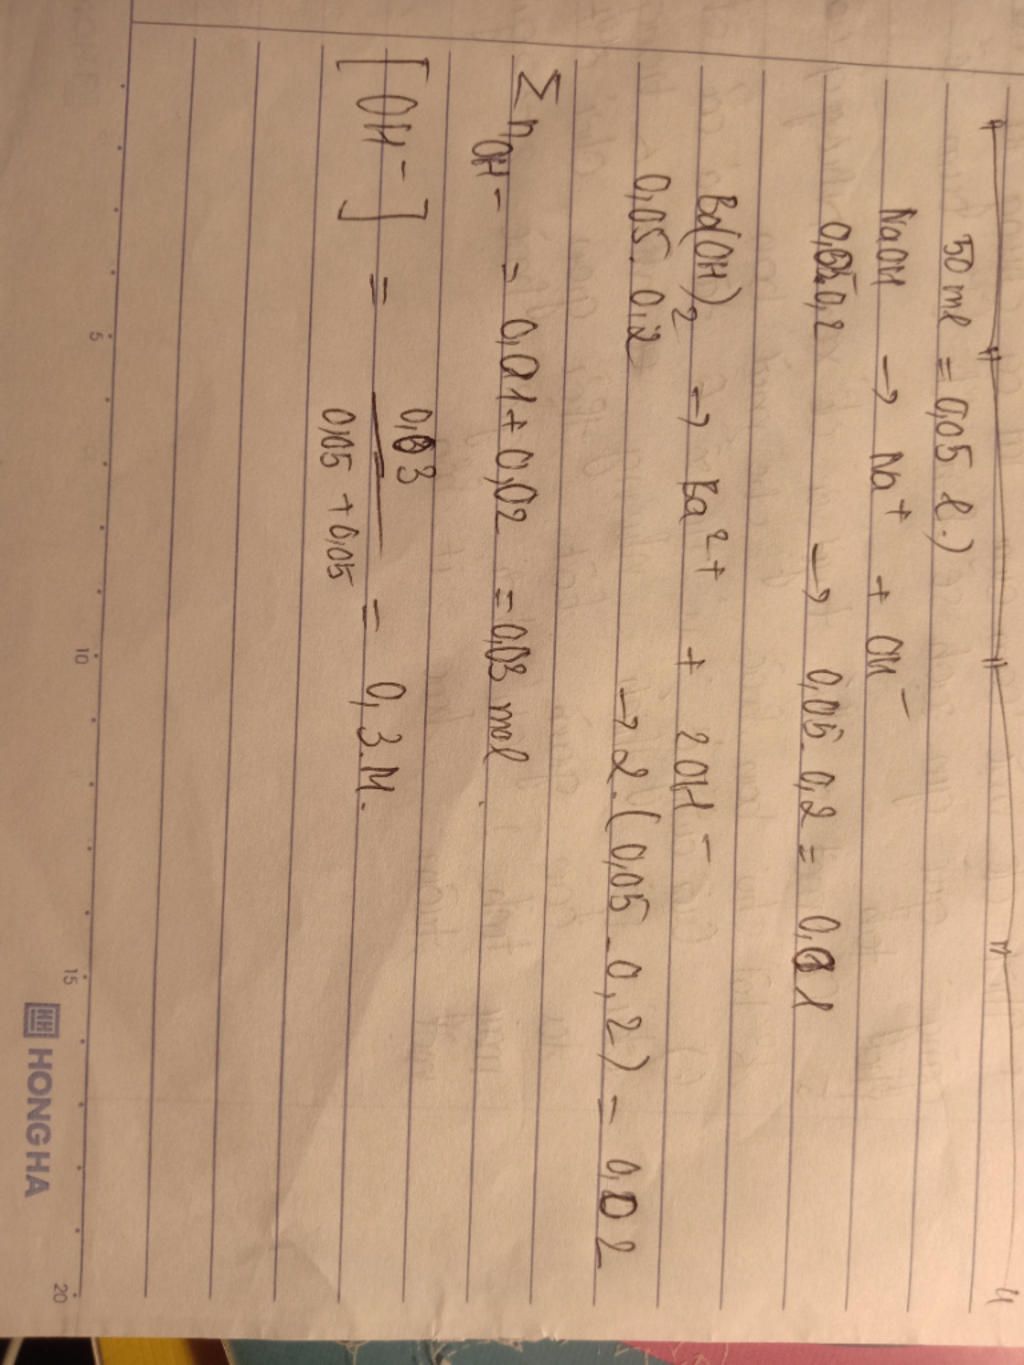 50 ml = 0,05 l.)
NaOH → Na⁺ + OH⁻
0,05.0,2 → 0,05.0,2 = 0,01
Ba(OH)₂ → Ba²⁺ + 2OH⁻
0,05.0,2 → 2.(0,05.0,2) = 0,02
Σn_OH⁻ = 0,01 + 0,02 = 0,03 mol.
[OH⁻] = 0,03 / 0,05 + 0,05 = 0,3.M.
5 10 15 20
HH HONG HA